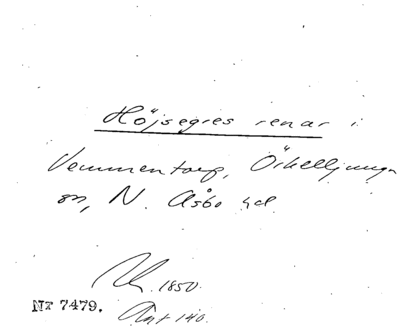 Höjsegres renar i
Vemmentorp, Örkelljunga
sn, N. Åsbo hd
1850.
Nr 7479.
Ant 140.